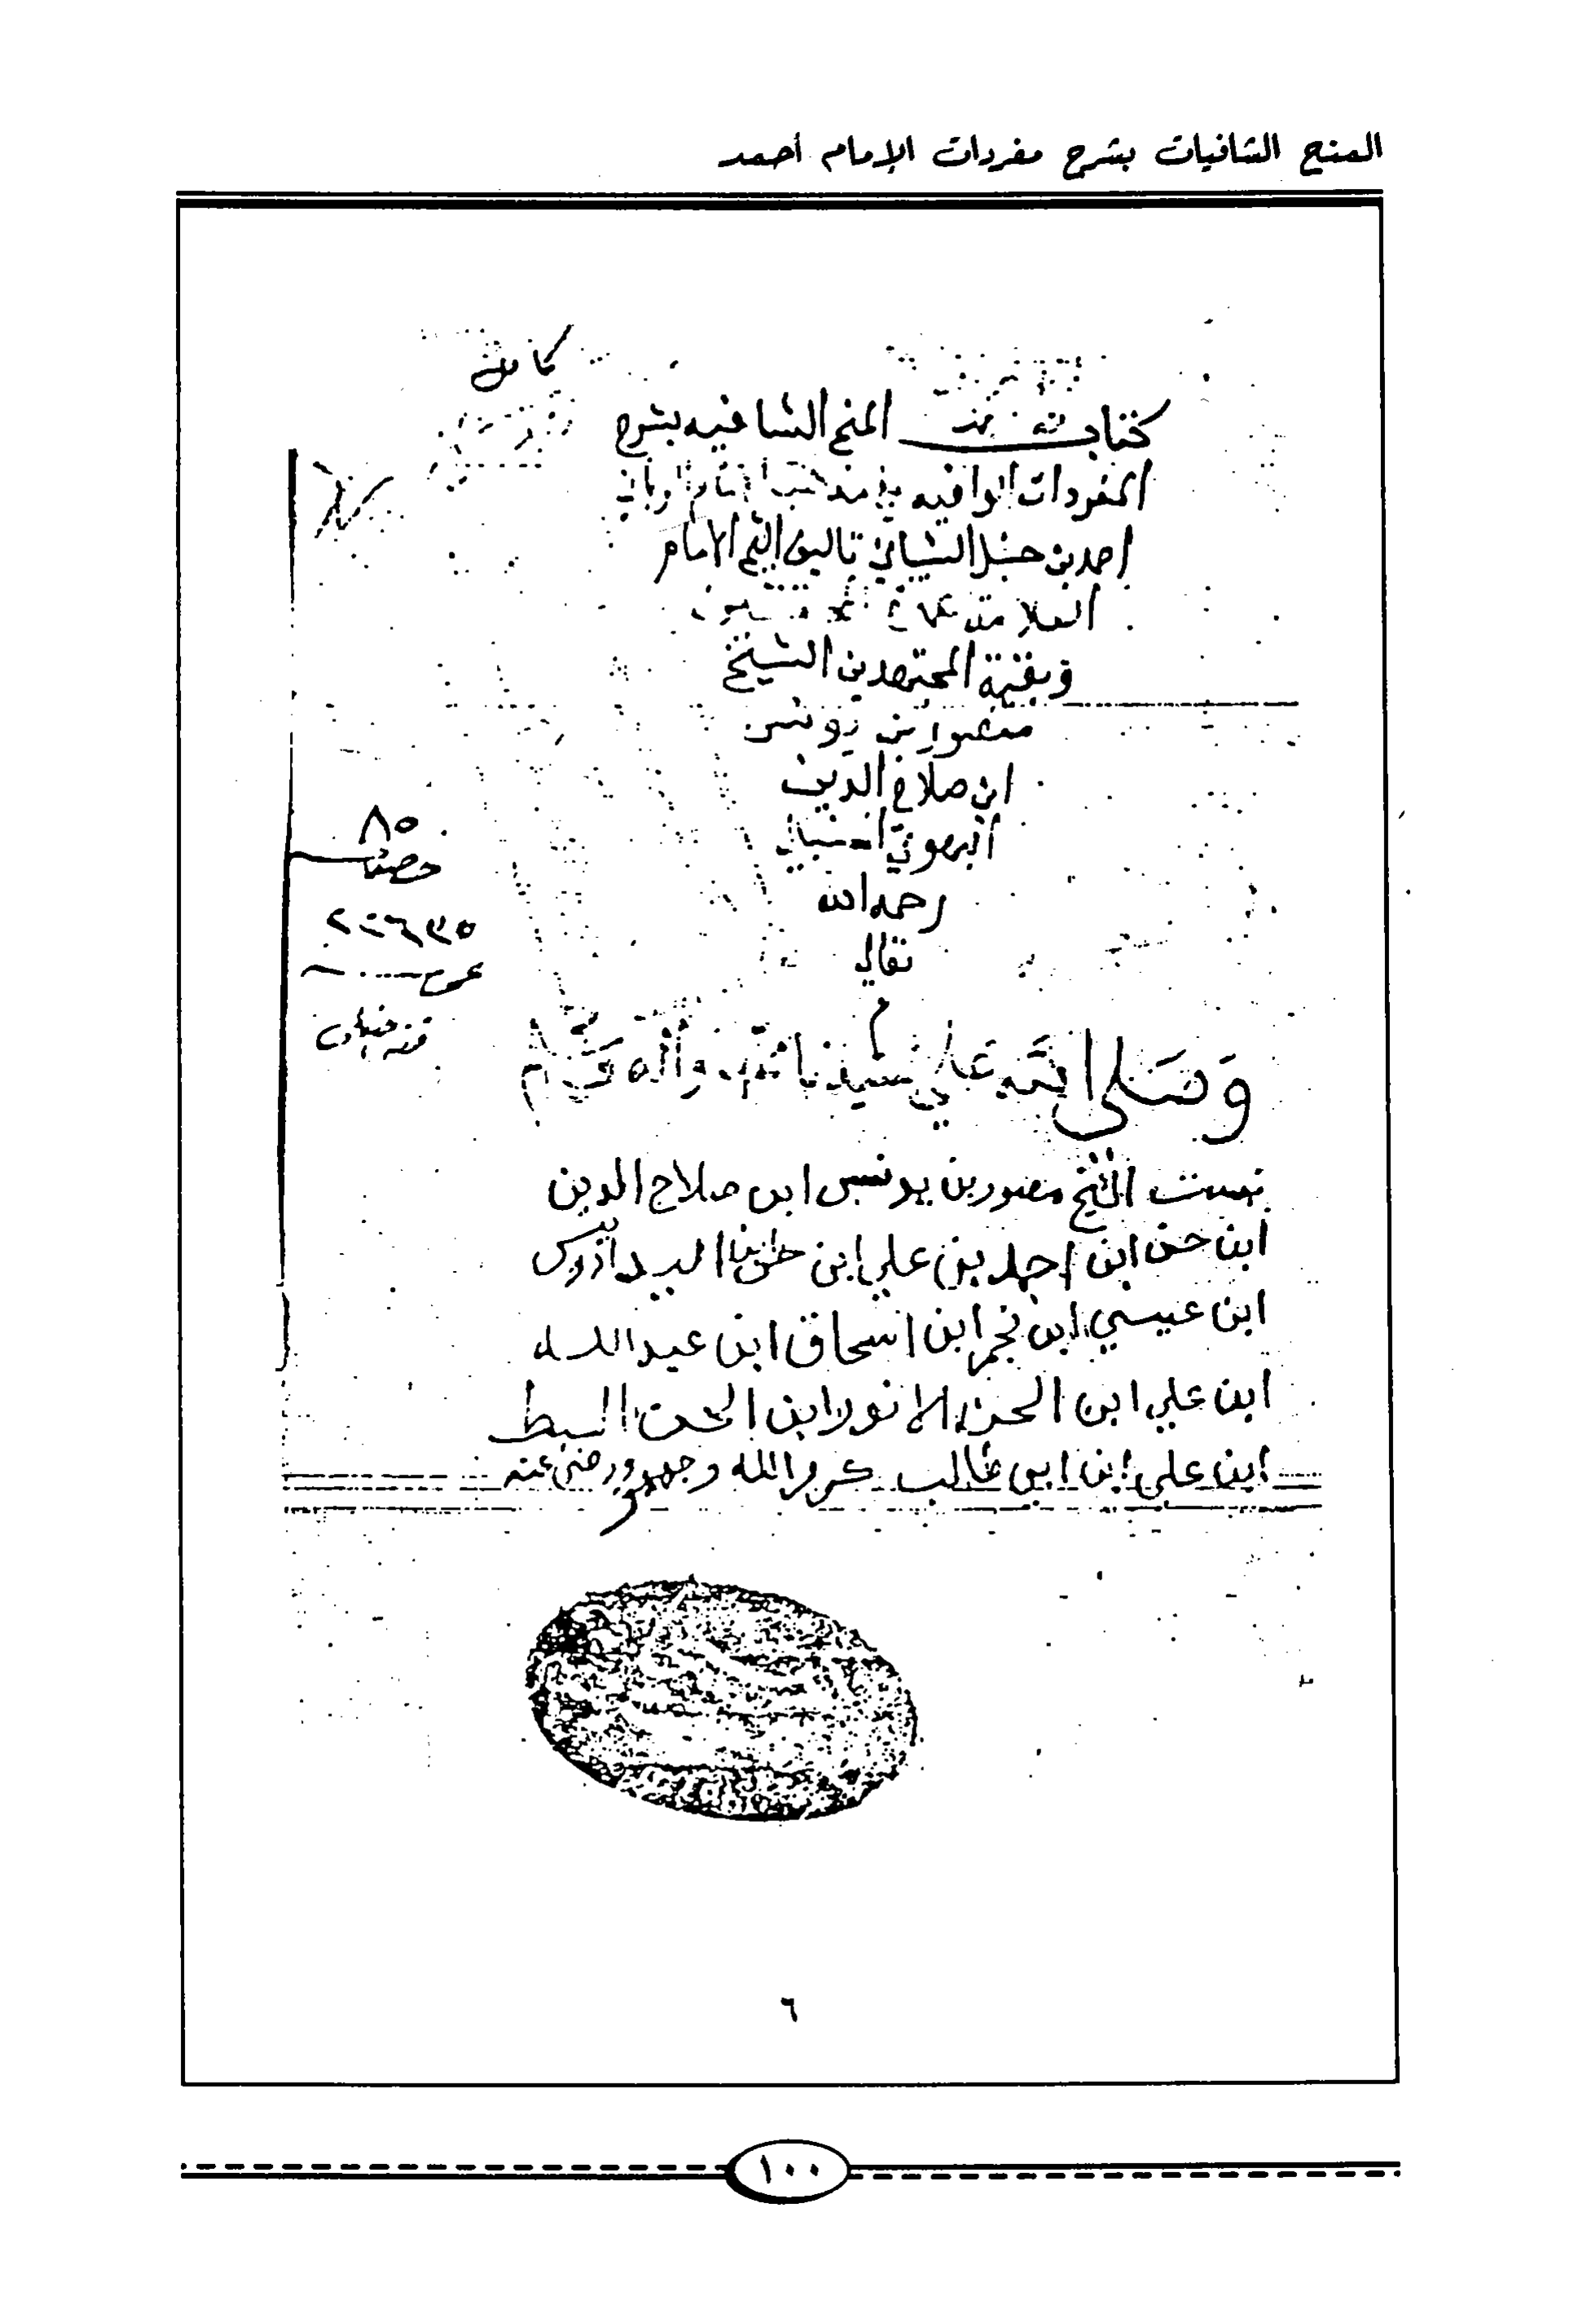 المنح الشافيات بشرح مفردات الإمام أحمد
كامل
كتاب المنح الشافيه بشرح
المفردات الوافيه مذهب الرباني
احمد بن حنبل الشيباني تاليف الشيخ الامام
العلامة
وبقية المجتهدين الشيخ
منصور بن يونس
ابن صلاح الدين
البهوتي الحنبلي
رحمه الله
تعالى
م
٨٥
خصوصي
عمومي
فقه حنبلى
وصلى الله على سيدنا محمد وآله
نسبت الشيخ منصور بن يونس ابن صلاح الدين
ابن حسن ابن احمد بن علي ابن السيد
ابن عيسي ابن نجم ابن اسحاق ابن عبد الله
ابن علي ابن الحسن الانور ابن الحسن السبط
ابن علي ابن ابي طالب كرم الله وجهه ورضي عنه
٦
١٠٠